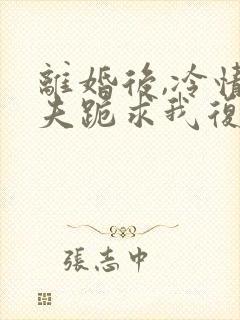 離婚後,冷情
夫跪求我復
張志中